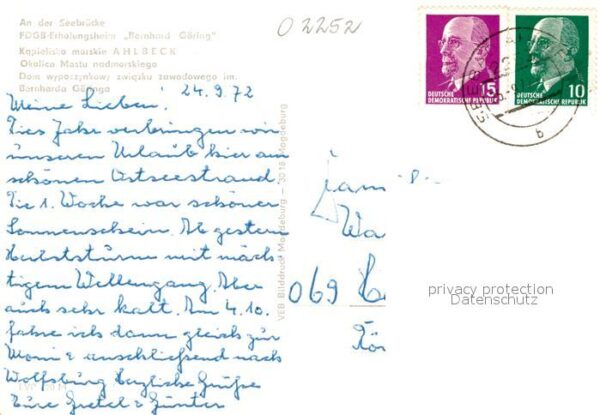 02252
An der Seebrücke
FDGB-Erholungsheim „Bernhard Göring"
Kąpielisko morskie AHLBECK
Okolica Mostu nadmorskiego
Dom wypoczynkowy związku zawodowego im.
Bernharda Göringa
24.9.72
Meine Lieben!
Dies Jahr verbringen wir
unseren Urlaub hier am
schönen Ostseestrand.
Die 1. Woche war schöner
Sonnenschein. Ab gestern
Herbststürme mit mäch-
tigem Wellengang. Aber
auch sehr kalt. Am 4.10.
fahre ich dann gleich zur
Moni & anschließend nach
Wolfsburg Herzliche Grüße
Eure Gretel & Günter
VEB Bilddruck Magdeburg — 3018 Magdeburg
15
DEUTSCHE
DEMOKRATISCHE REPUBLIK
10
DEUTSCHE
DEMOKRATISCHE REPUBLIK
b
Fam
Wa
069 H
Kör
privacy protection
Datenschutz